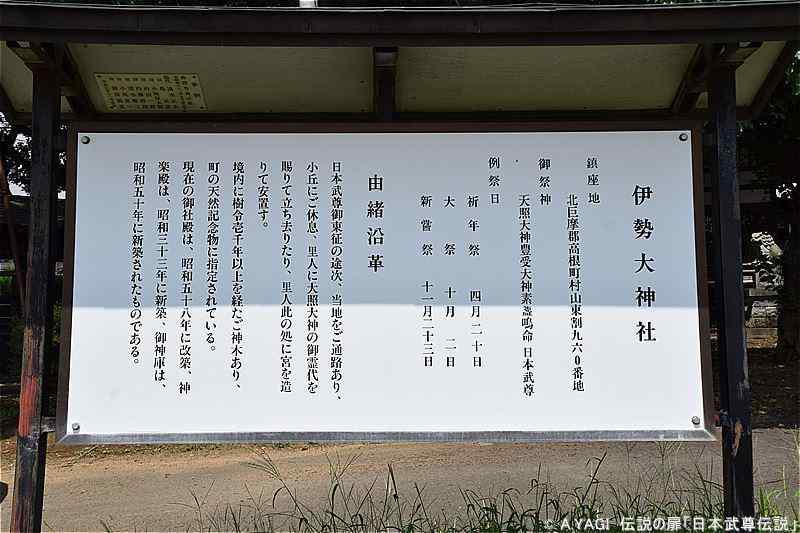 伊勢大神社
鎮座地
北巨摩郡高根町村山東割九六0番地
御祭神
天照大神豊受大神素盞嗚命 日本武尊
例祭日
祈年祭 四月二十日
大祭 十月二日
新嘗祭 十一月二十三日
由緒沿革
日本武尊御東征の途次、当地をご通路あり、
小丘にご休息、里人に天照大神の御霊代を
賜りて立ち去りたり、里人此の処に宮を造
りて安置す。
境内に樹令壱千年以上を経たご神木あり、
町の天然記念物に指定されている。
現在の御社殿は、昭和五十八年に改築、神
楽殿は、昭和三十三年に新築、御神庫は、
昭和五十年に新築されたものである。
© A.YAGI 伝説の扉「日本武尊伝説」